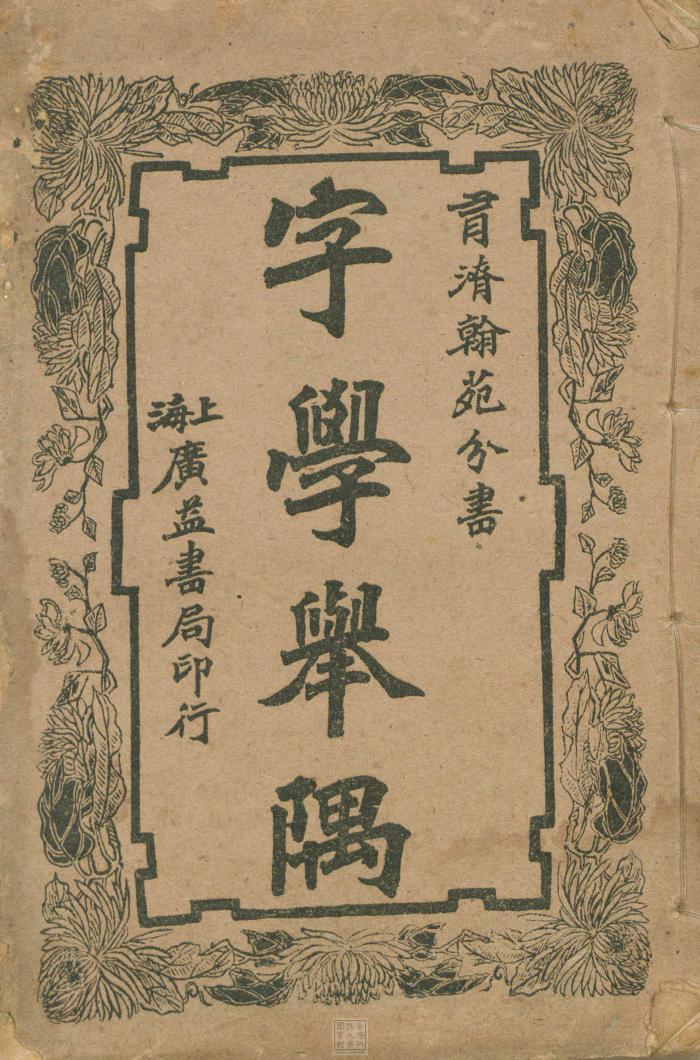 翰苑分書
字學舉隅
上海廣益書局印行